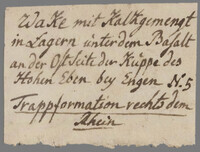 Wake mit Kalkgemengt
in Lagern unter dem Basalt
an der Ost Seite der Kuppe des
Hohen Eben bey Engen N. 5
Trappformation rechts dem
Rhein